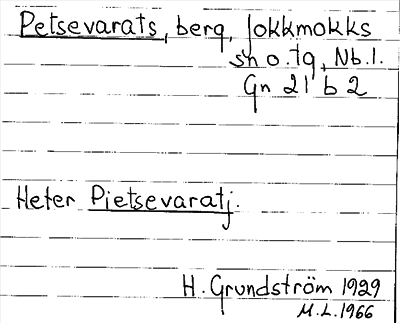 Petsevarats, berg, Jokkmokks
sn o. tg, Nb.l.
Gn 21 b 2
Heter Pietsevaratj.
H. Grundström 1929
M.L. 1966